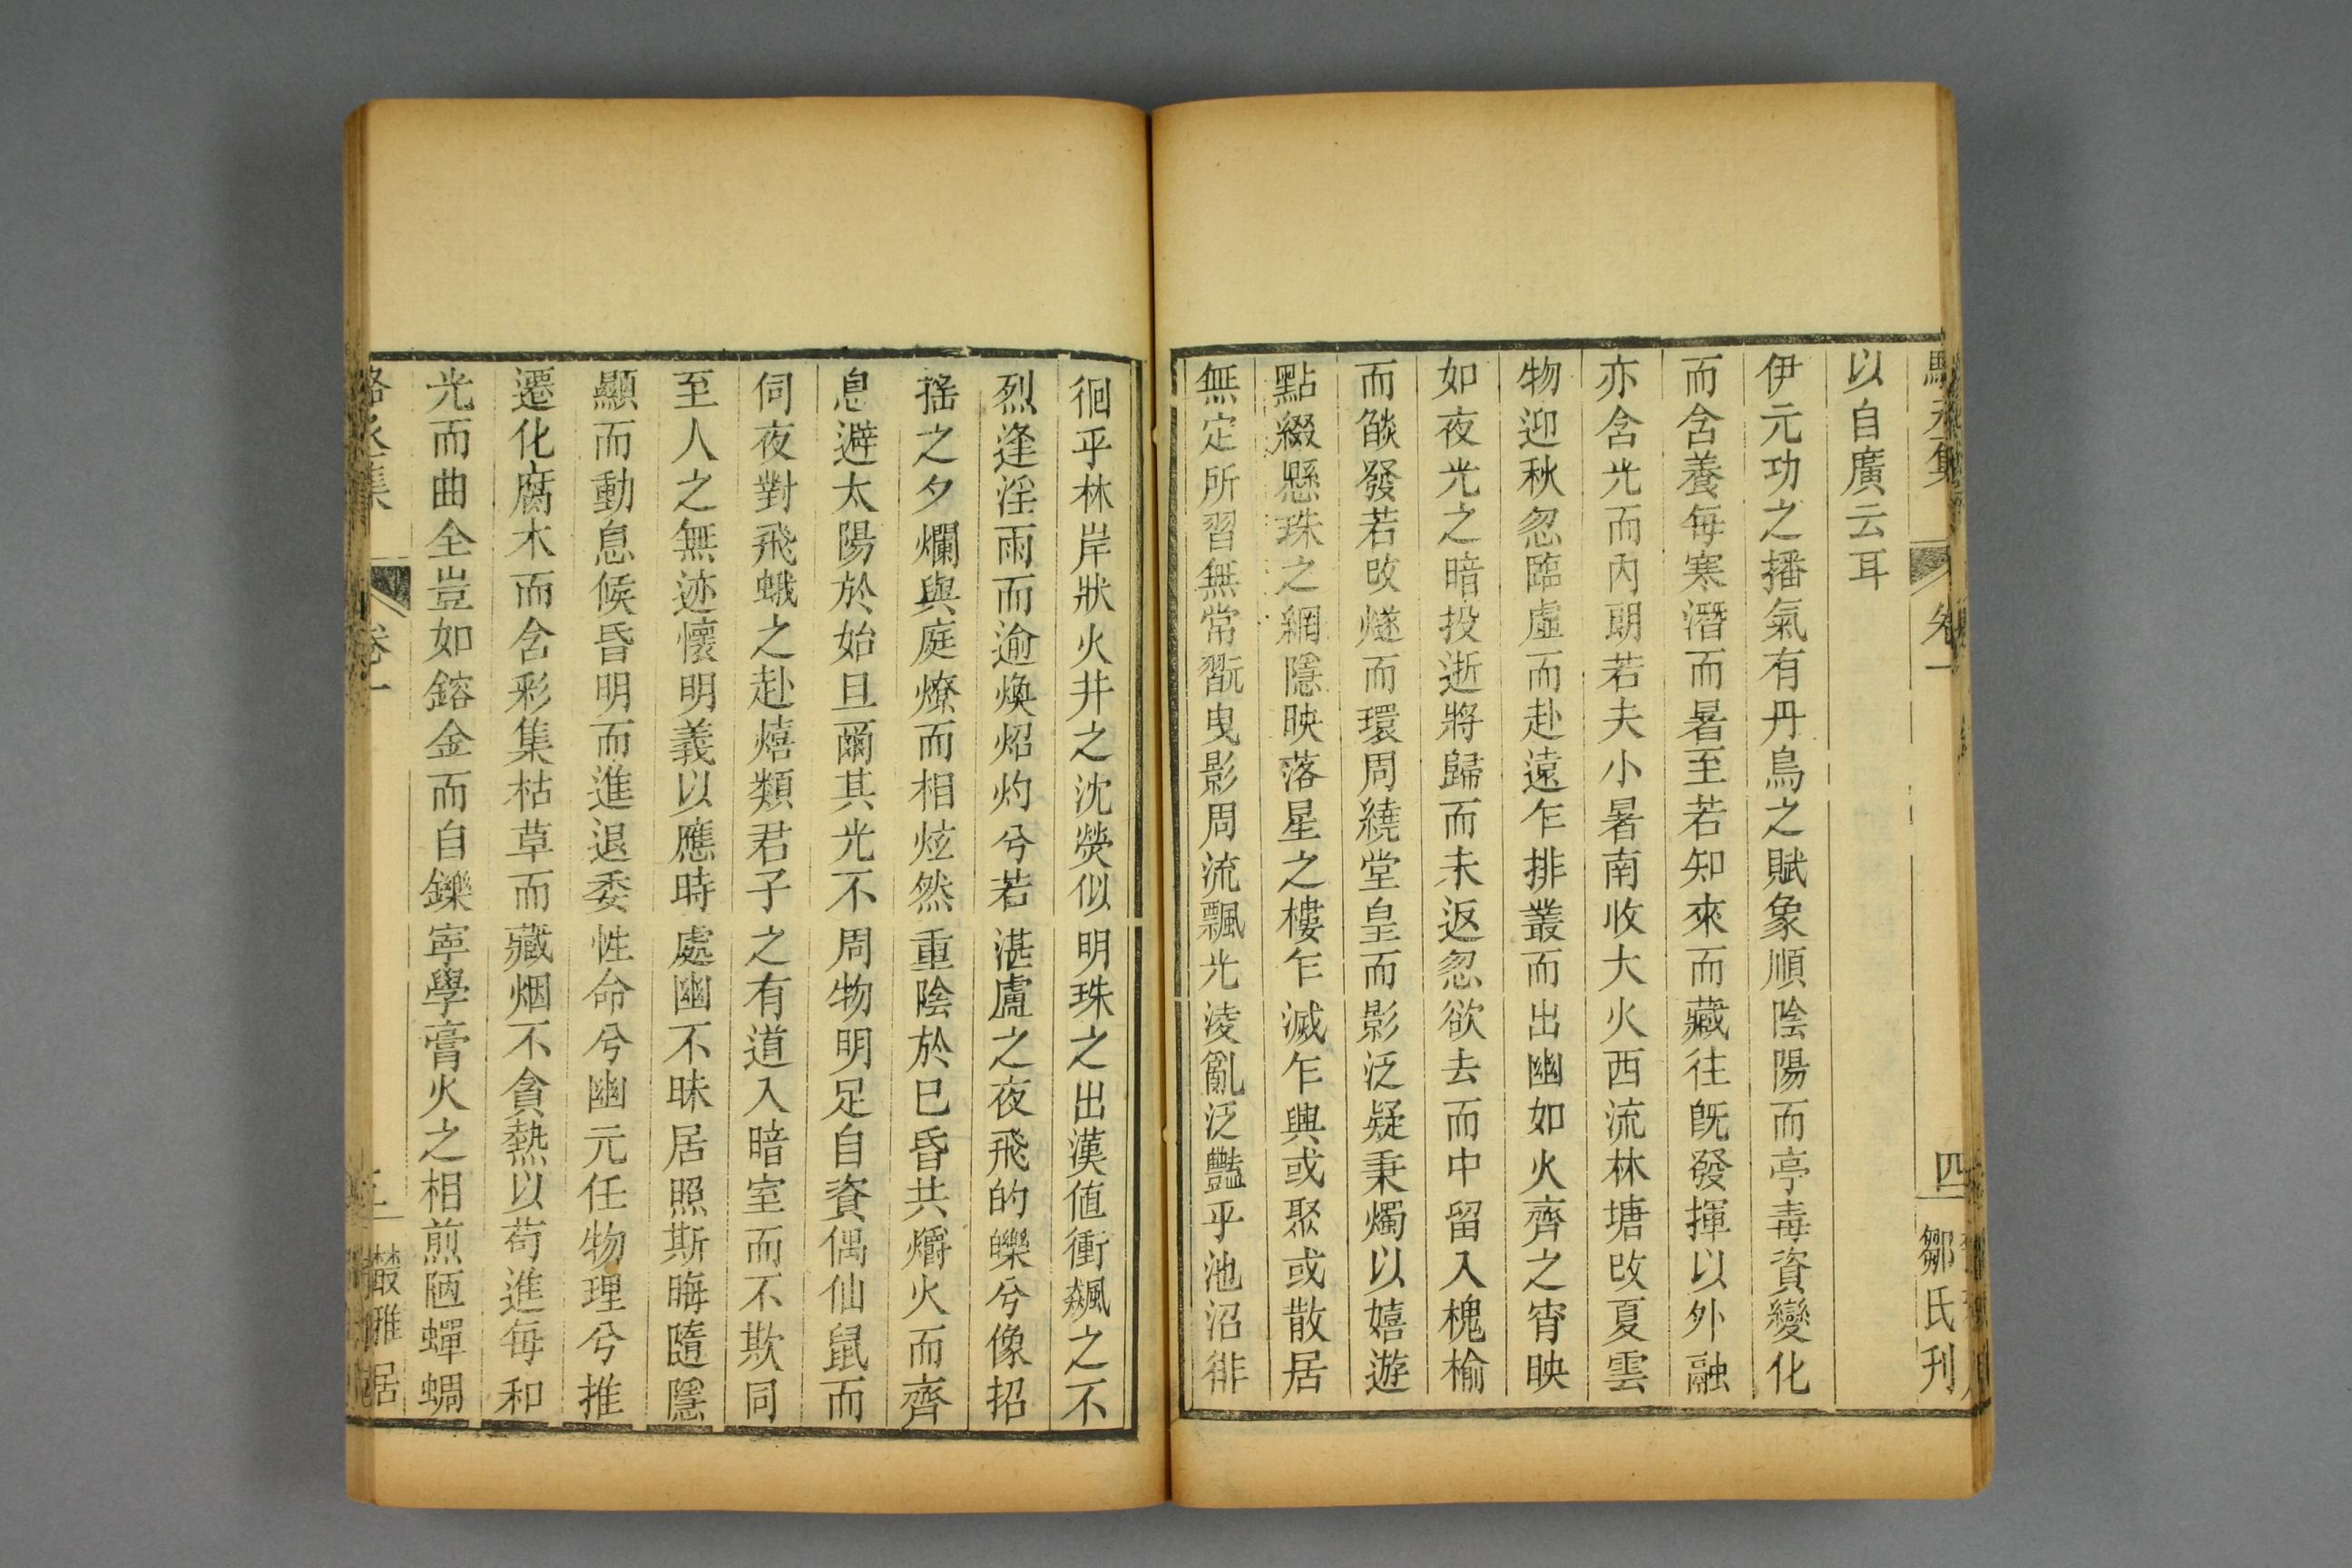 駱丞集 卷一 四 鄒氏刊
以自廣云耳
伊元功之播氣有丹鳥之賦象順陰陽而亭毒資變化
而含養每寒潛而暑至若知來而藏往旣發揮以外融
亦含光而內朗若夫小暑南收大火西流林塘改夏雲
物迎秋忽臨虛而赴遠乍排叢而出幽如火齊之宵映
如夜光之暗投逝將歸而未返忽欲去而中留入槐榆
而燄發若改燧而環周繞堂皇而影泛疑秉燭以嬉遊
點綴懸珠之網隱映落星之樓乍滅乍興或聚或散居
無定所習無常翫曳影周流飄光淩亂泛豔乎池沼徘
徊乎林岸狀火井之沈熒似明珠之出漢值衝飆之不
烈逢淫雨而逾煥炤灼兮若湛盧之夜飛的皪兮像招
搖之夕爛與庭燎而相炫然重陰於已昏共爝火而齊
息避太陽於始旦爾其光不周物明足自資偶仙鼠而
伺夜對飛蛾之赴熺類君子之有道入暗室而不欺同
至人之無迹懷明義以應時處幽不昧居照斯晦隨隱
顯而動息候昏明而進退委性命兮幽元任物理兮推
遷化腐木而含彩集枯草而藏烟不貪熱以苟進每和
光而曲全豈如鎔金而自鑠寧學膏火之相煎陋蟬蜩
駱丞集 卷一 叢雅居